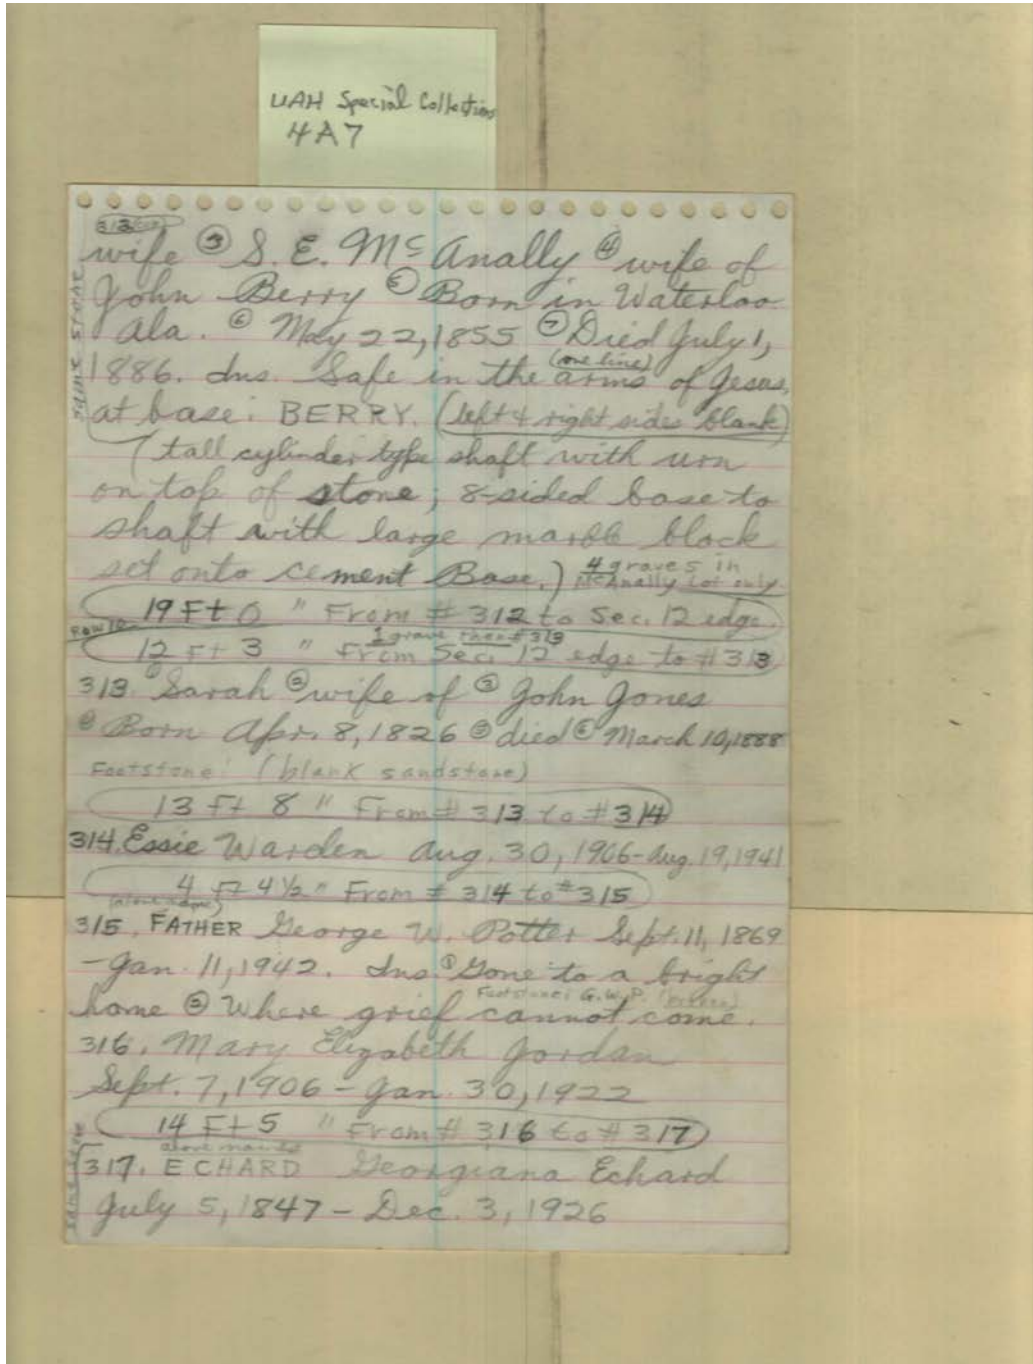 UAH Special Collections
4A7
312
wife ③ S. E. McAnally ④ wife of
John Berry ⑤ Born in Waterloo
Ala. ⑥ May 22, 1855 ⑦ Died July 1,
(one line)
1886. Ins. Safe in the arms of Jesus,
at base: BERRY. (left & right sides blank)
same stone
(tall cylinder type shaft with urn
on top of stone; 8-sided base to
shaft with large marble block
set onto cement Base.) 4 graves in
McAnally Lot only.
19 Ft 0 " From # 312 to Sec. 12 edge.
Row 10
1 grave then # 313
12 Ft 3 " From Sec. 12 edge to # 313
313. ① Sarah ② wife of ③ John Jones
④ Born Apr. 8, 1826 ⑤ died ⑥ March 10, 1888
Footstone: (blank sandstone)
13 Ft 8 " From # 313 to # 314
314. Essie Warden Aug. 30, 1906-Aug. 19, 1941
4 Ft 4 1/2 " From # 314 to # 315
315. FATHER George W. Potter Sept. 11, 1869
-Jan. 11, 1942. Ins. ① Gone to a bright
Footstone: G.W.P. (broken)
home ② Where grief cannot come.
316. Mary Elizabeth Jordan
Sept. 7, 1906 - Jan. 30, 1922
14 Ft 5 " From # 316 to # 317
above names
317. ECHARD Georgiana Echard
July 5, 1847 - Dec. 3, 1926
same stone